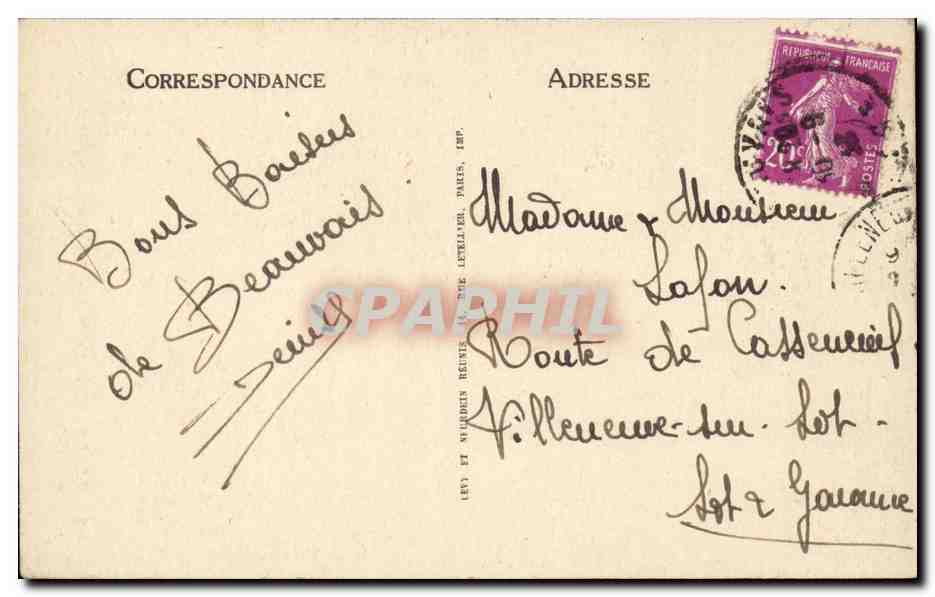 CORRESPONDANCE
Bons Baisers
de Beauvais
ADRESSE
Madame & Monsieur
Lafon.
Route de Casseneuil.
Villeneuve-sur-Lot-
Lot & Garonne
LEVY ET NEURDEIN RÉUNIS, 44, RUE LETELLIER, PARIS, IMP.
REPUBLIQUE FRANÇAISE
20c
POSTES
SPAPHIL